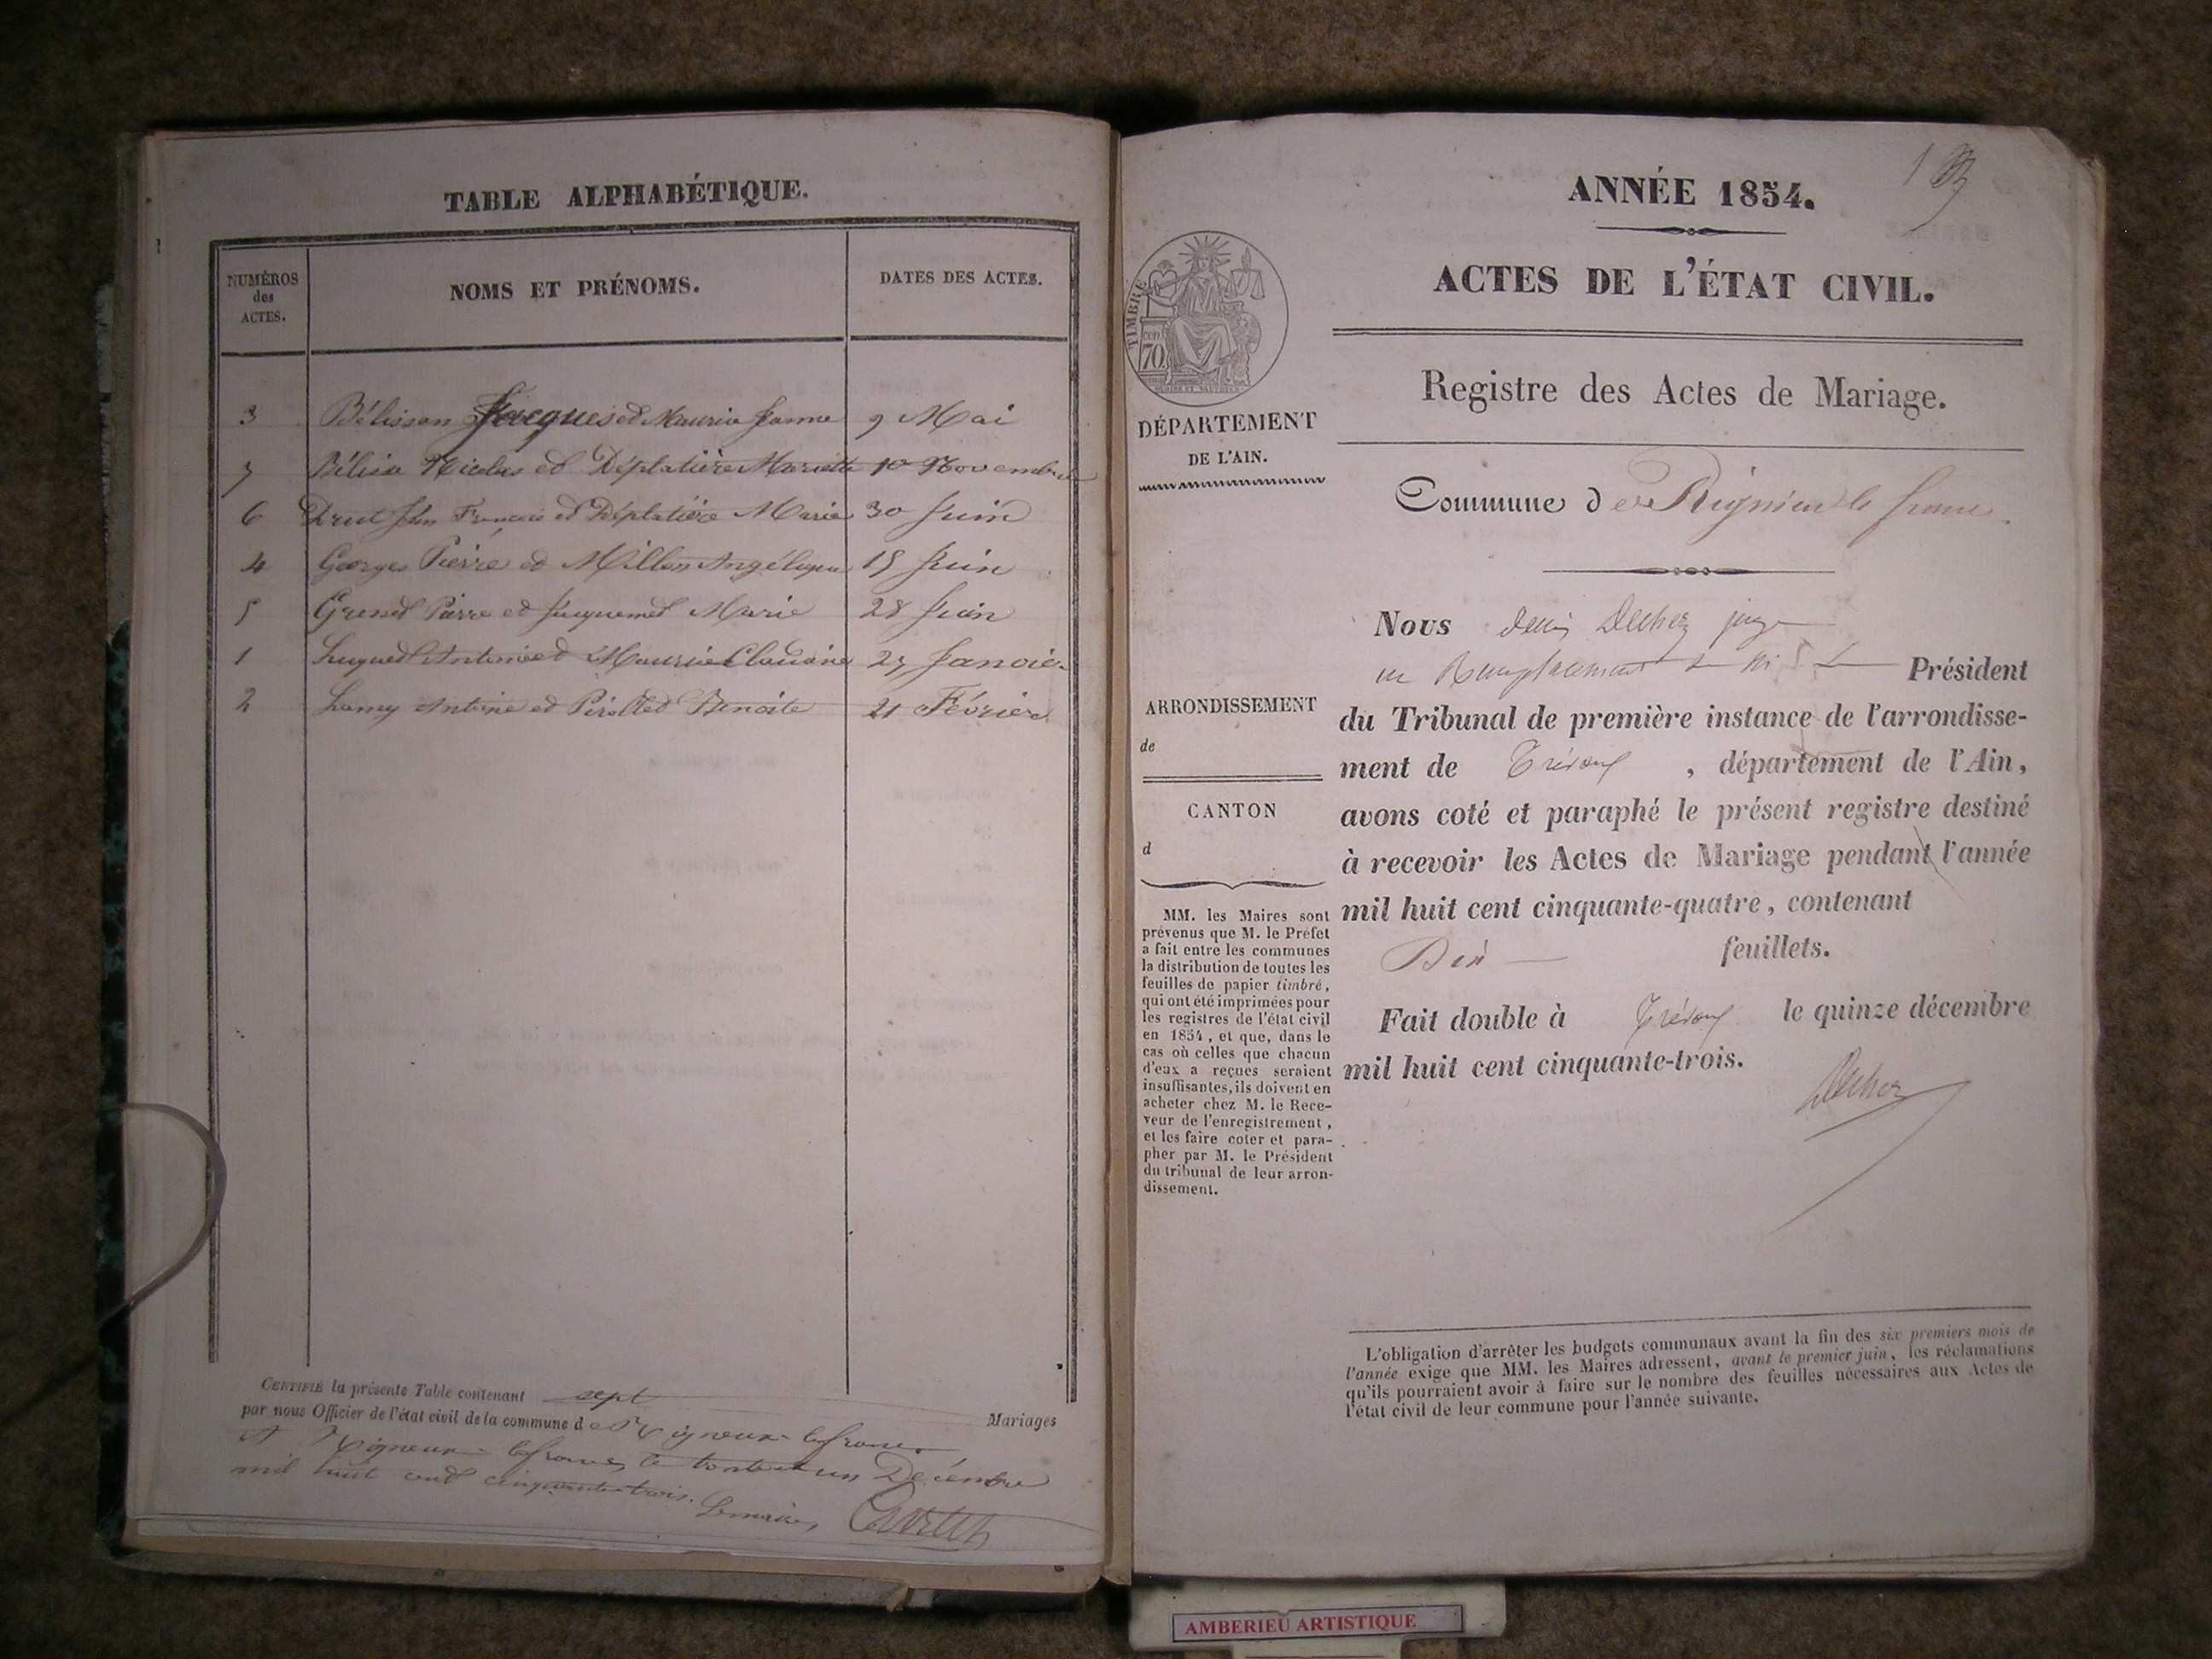 TABLE ALPHABÉTIQUE.
NUMÉROS
des
ACTES.
NOMS ET PRÉNOMS.
DATES DES ACTES.
3 Bélisson Jacques et Maurice Jeanne 9 Mai
7 Nicolas et Déplatière Mariette 10 Novembre
6 Drut Jean François et Déplatière Marie 30 Juin
4 Georges Pierre et Millon Angélique 15 Juin
5 Grenet Pierre et Marie 28 Juin
1 Antoine et Maurice Claudine 27 Janvier
2 Lamy Antoine et Benoite 21 Février
CERTIFIÉ la présente Table contenant sept Mariages
par nous Officier de l'état civil de la commune de Rigneux-lefranc
A Rigneux-lefranc, le trente et un Décembre
mil huit cent cinquante trois. Le maire,
ANNÉE 1854.
ACTES DE L'ÉTAT CIVIL.
TIMBRE
70
Registre des Actes de Mariage.
DÉPARTEMENT
DE L'AIN.
Commune de Rignieu le franc.
ARRONDISSEMENT
de
CANTON
d
MM. les Maires sont
prévenus que M. le Préfet
a fait entre les communes
la distribution de toutes les
feuilles de papier timbré,
qui ont été imprimées pour
les registres de l'état civil
en 1854, et que, dans le
cas où celles que chacun
d'eux a reçues seraient
insuffisantes, ils doivent en
acheter chez M. le Rece-
veur de l'enregistrement,
et les faire coter et para-
pher par M. le Président
du tribunal de leur arron-
dissement.
Nous juge
en Remplacement de Président
du Tribunal de première instance de l'arrondisse-
ment de Trévoux, département de l'Ain,
avons coté et paraphé le présent registre destiné
à recevoir les Actes de Mariage pendant l'année
mil huit cent cinquante-quatre, contenant
Dix feuillets.
Fait double à Trévoux le quinze décembre
mil huit cent cinquante-trois.
L'obligation d'arrêter les budgets communaux avant la fin des six premiers mois de
l'année exige que MM. les Maires adressent, avant le premier juin, les réclamations
qu'ils pourraient avoir à faire sur le nombre des feuilles nécessaires aux Actes de
l'état civil de leur commune pour l'année suivante.
AMBERIEU ARTISTIQUE